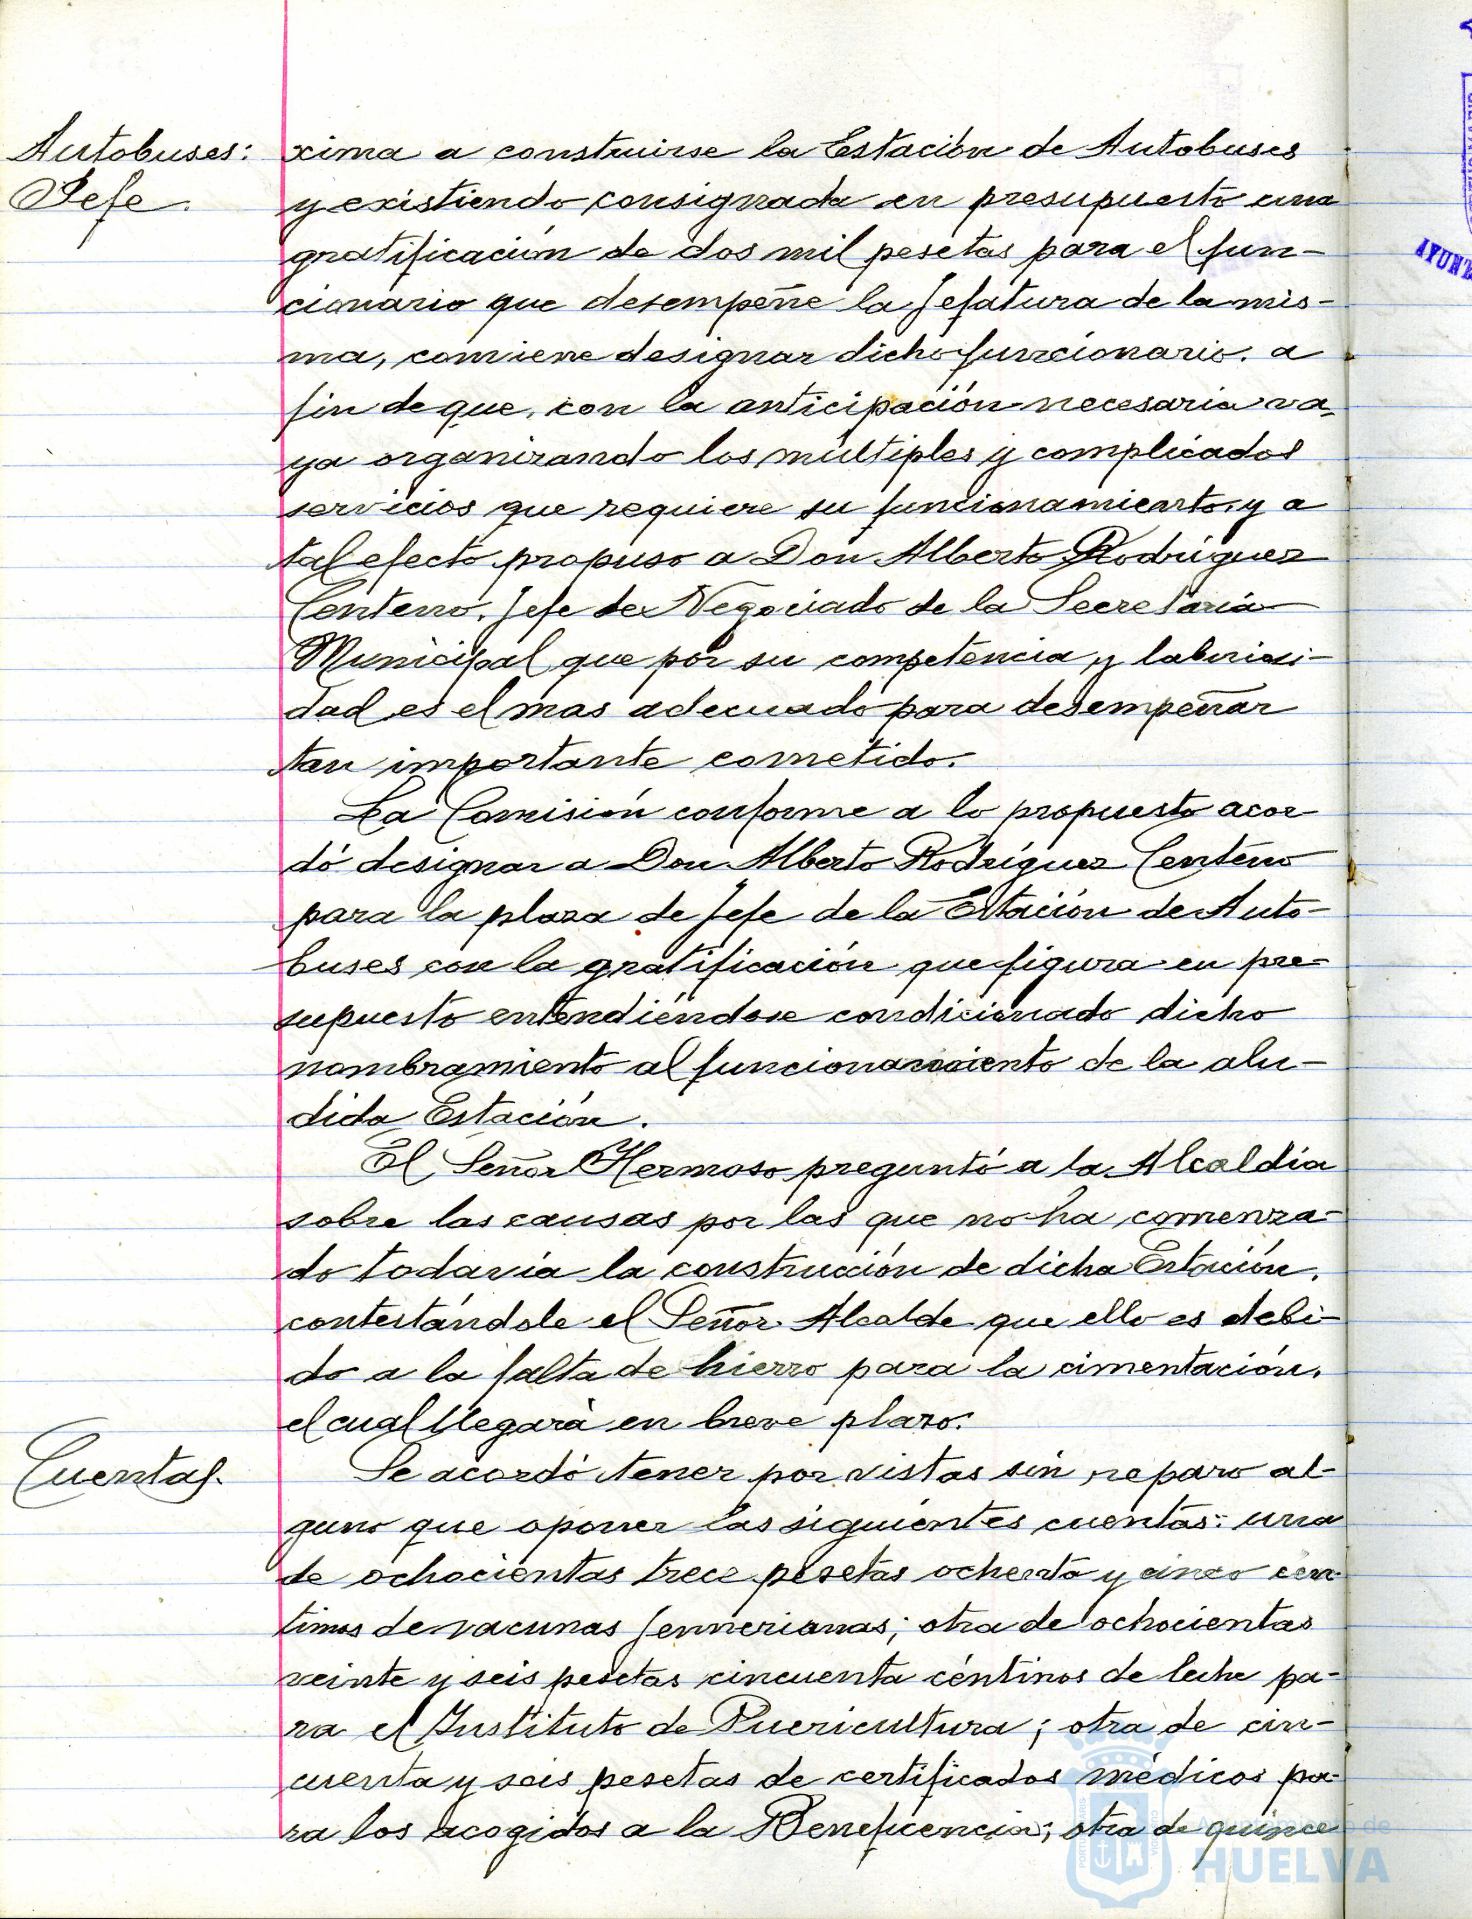 Autobuses:
Jefe.
xima a construirse la Estación de Autobuses
y existiendo consignada en presupuesto una
gratificación de dos mil pesetas para el fun-
cionario que desempeñe la Jefatura de la mis-
ma, conviene designar dicho funcionario, a
fin de que, con la anticipación necesaria va-
ya organizando los múltiples y complicados
servicios que requiere su funcionamiento, y a
tal efecto propuso a Don Alberto Rodríguez
Centeno, Jefe de Negociado de la Secretaría
Municipal que por su competencia y laboriosi-
dad es el mas adecuado para desempeñar
tan importante cometido.
La Comisión conforme a lo propuesto acor
dó designar a Don Alberto Rodríguez Centeno
para la plaza de Jefe de la Estación de Auto-
buses con la gratificación que figura en pre-
supuesto entendiéndose condicionado dicho
nombramiento al funcionamiento de la alu-
dida Estación.
El Señor Hermoso preguntó a la Alcaldía
sobre las causas por las que no ha comenza-
do todavía la construcción de dicha Estación,
contestándole el Señor Alcalde que ello es debi-
do a la falta de hierro para la cimentación,
el cual llegará en breve plazo.
Cuentas.
Se acordó tener por vistas sin reparo al-
guno que oponer las siguientes cuentas: una
de ochocientas trece pesetas ochenta y cinco cén
timos de vacunas Jennerianas; otra de ochocientas
veinte y seis pesetas cincuenta céntimos de leche pa-
ra el Instituto de Puericultura; otra de cin-
cuenta y seis pesetas de certificados médicos pa-
ra los acogidos a la Beneficencia; otra de quince
Ayuntamiento de
HUELVA